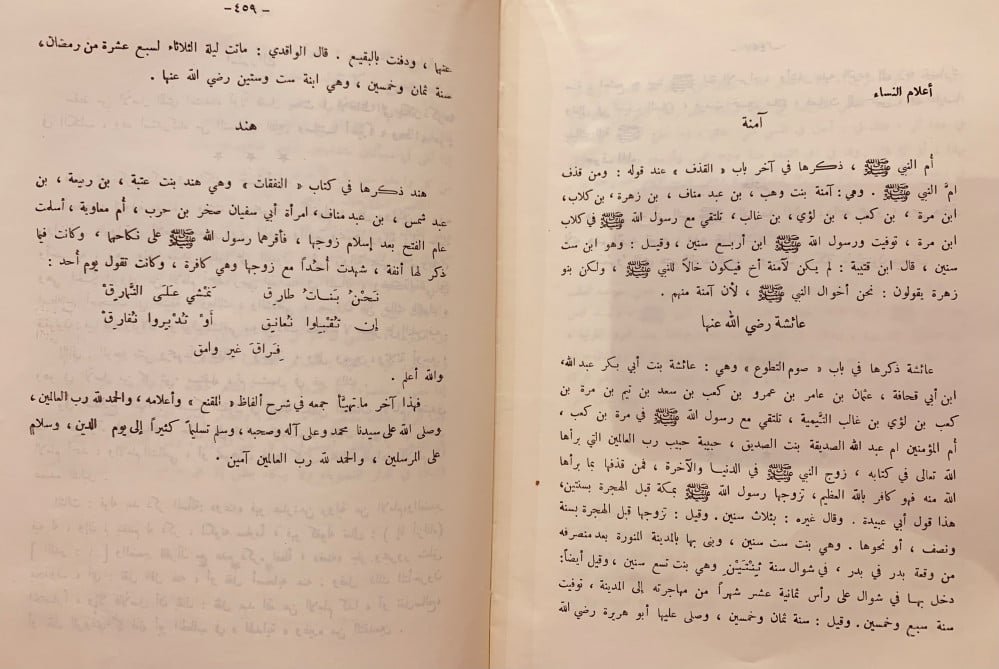 أعلام النساء
آمنة
أم النبي ﷺ ، ذكرها في آخر باب « القذف » عند قوله : ومن قذف
امَّ النبي ﷺ . وهي : آمنة بنت وهب ، بن عبد مناف ، بن زهرة ، بن كلاب ،
ابن مرة ، بن كعب ، بن لؤي ، بن غالب ، تلتقي مع رسول الله ﷺ في كلاب
ابن مرة ، توفيت ورسول الله ﷺ ابن أربع سنين ، وقيل : وهو ابن ست
سنين ، قال ابن قتيبة : لم يكن لآمنة أخ فيكون خالاً للنبي ﷺ ، ولكن بنو
زهرة يقولون : نحن أخوال النبي ﷺ ، لأن آمنة منهم .
عائشة رضي الله عنها
عائشة ذكرها في باب « صوم التطوع » وهي : عائشة بنت أبي بكر عبد الله ،
ابن أبي قحافة ، عثمان بن عامر بن عمرو بن كعب بن سعد بن تيم بن مرة بن
كعب بن لؤي بن غالب التَّيمية ، تلتقي مع رسول الله ﷺ في مرة بن كعب ،
أم المؤمنين ام عبد الله الصديقة بنت الصديق ، حبيبة حبيب رب العالمين التي برأها
الله تعالى في كتابه ، زوج النبي ﷺ في الدنيا والآخرة ، فمن قذفها بما برأها
الله منه فهو كافر بالله العظيم ، تزوجها رسول الله ﷺ بمكة قبل الهجرة بسنتين ،
هذا قول أبي عبيدة . وقال غيره : بثلاث سنين . وقيل : تزوجها قبل الهجرة بسنة
ونصف ، أو نحوها . وهي بنت ست سنين ، وبنى بها بالمدينة المنورة بعد منصرفه
من وقعة بدر في بدر ، في شوال سنة ثِنْتَيْنِ وهي بنت تسع سنين ، وقيل أيضاً :
دخل بها في شوال على رأس ثمانية عشر شهراً من مهاجرته إلى المدينة ، توفيت
سنة سبع وخمسين . وقيل : سنة ثمان وخمسين ، وصلى عليها أبو هريرة رضي الله
- ٤٥٩ -
عنها ، ودفنت بالبقيع . قال الواقدي : ماتت ليلة الثلاثاء لسبع عشرة من رمضان ،
سنة ثمان وخمسين ، وهي ابنة ست وستين رضي الله عنها .
هند
هند ذكرها في كتاب « النفقات » وهي هند بنت عتبة ، بن ربيعة ، بن
عبد شمس ، بن عبد مناف ، امرأة أبي سفيان صخر بن حرب ، أم معاوية ، أسلمت
عام الفتح بعد إسلام زوجها ، فأقرهما رسول الله ﷺ على نكاحهما ، وكانت فيما
ذكر لها أنفة ، شهدت أحُداً مع زوجها وهي كافرة ، وكانت تقول يوم أحد :
نَحْنُ بَنَاتُ طارِق نَمْشي عَلَى النَّمارِقْ
إن تُقْبِلوا نُعانِق أوْ تُدْبِروا نُفارِقْ
فِراقَ غير وامق
والله أعلم .
فهذا آخر ما تهيَّأ جمعه في شرح ألفاظ « المقنع » وأعلامه ، والحمد لله رب العالمين ،
وصلى الله على سيدنا محمد وعلى آله وصحبه ، وسلم تسليماً كثيراً إلى يوم الدين ، وسلام
على المرسلين ، والحمد لله رب العالمين آمين .